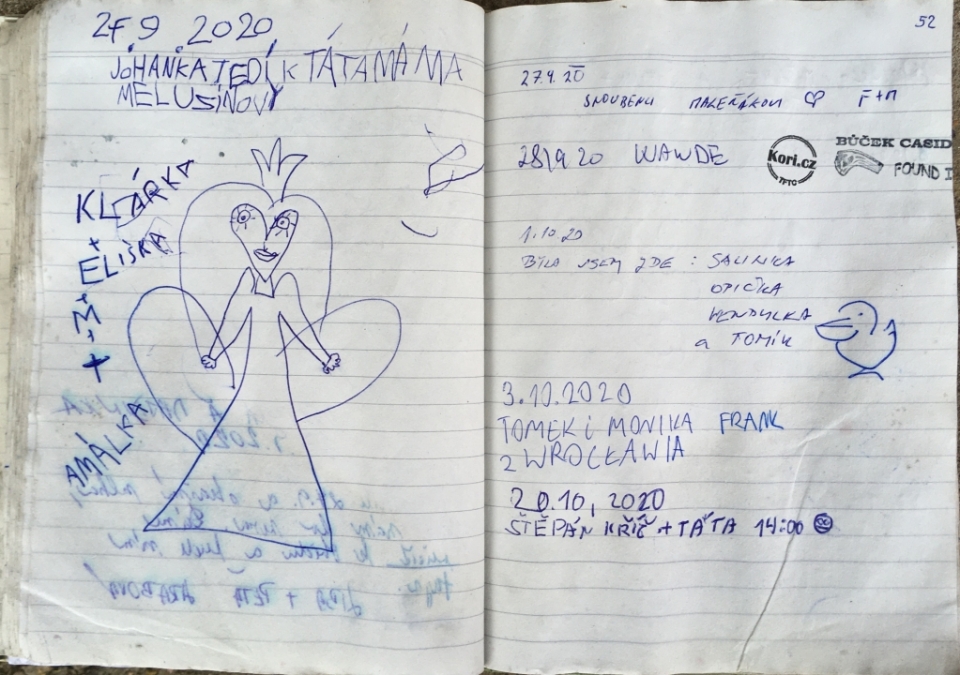 27.9.2020
JOHANKA TEDÍK TÁTA MÁMA
MELUSÍNOVÝ
KLÁRKA
+
ELIŠKA
+
M.
+
AMÁLKA
52
27.9.20
SNOUBENCI ♡ F+M
28/9 20 WAWDE
Kori.cz
TFTC
BŮČEK CASID
FOUND I
1.10.20
BYLA JSEM ZDE : SALINKA
OPIČKA
VENDULKA
a TOMÍK
3.10.2020
TOMEK i MONIKA FRANK
z WROCŁAWIA
20.10, 2020
ŠTĚPÁN KŘÍČ + TÁTA 14:00